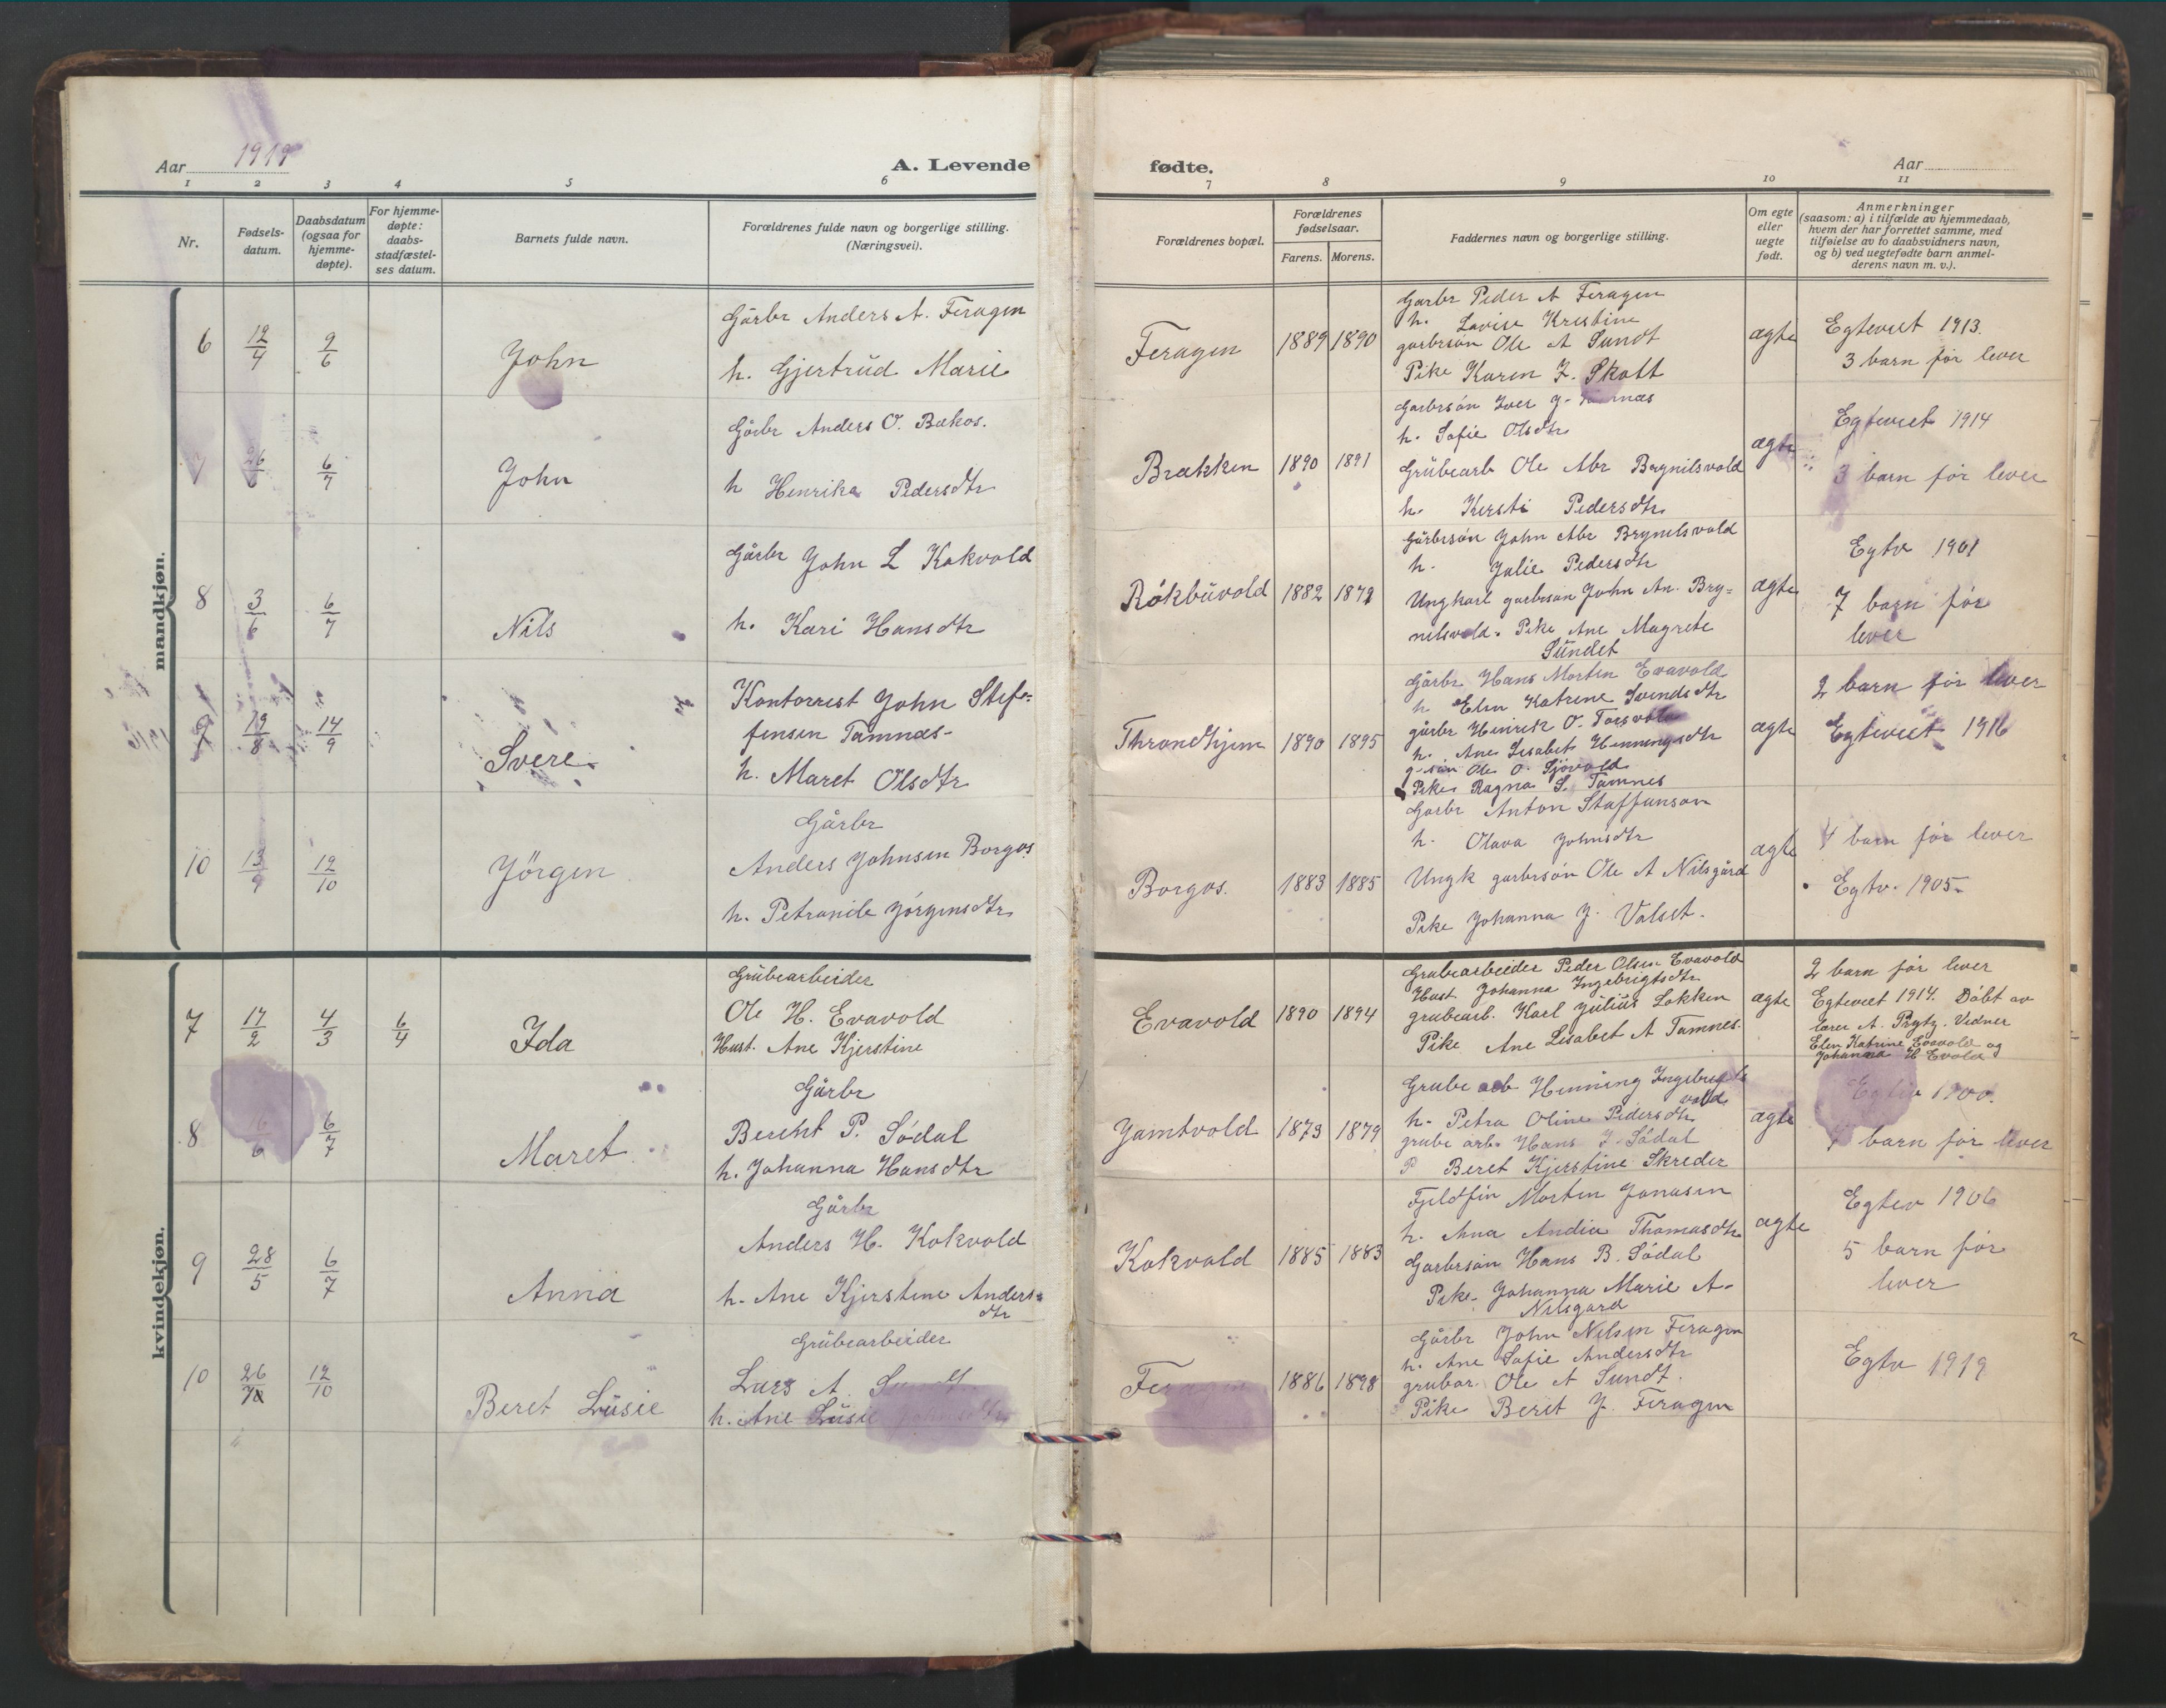 Aar 1919
A. Levende
fødte.
Aar
1 2 3 4 5 6 7 8 9 10 11
Nr.
Fødsels-
datum.
Daabsdatum
(ogsaa for
hjemme-
døpte).
For hjemme-
døpte:
daabs-
stadfæstel-
ses datum.
Barnets fulde navn.
Forældrenes fulde navn og borgerlige stilling.
(Næringsvei).
Forældrenes bopæl.
Forældrenes
fødselsaar.
Farens. Morens.
Faddernes navn og borgerlige stilling.
Om egte
eller
uegte
født.
Anmerkninger
(saasom: a) i tilfælde av hjemmedaab,
hvem der har forrettet samme, med
tilføielse av to daabsvidners navn,
og b) ved uegtefødte barn anmel-
derens navn m. v.).
mandkjøn.
6 12/4 9/6 John
Gårbr Anders A. Feragen
h. Gjertrud Marie
Feragen 1889 1890
Garbr Peder A Feragen
h. Lovise Kristine
garbrsön Ole A Sundt
Pike Karen J. Skott
ægte
Egteviet 1913.
3 barn før lever
7 26/6 6/7 John
Gårbr Anders O. Bækos.
h Henrika Pedersdtr
Brækken 1890 1891
Garbrsön Iver J.
h. Sofie Olsdtr
Grubearb Ole Abr Brynilsvold
h. Kersti Pedersdtr
ægte
Egteviet 1914
3 barn før lever
8 3/6 6/7 Nils
Gårbr John L Kokvold
h. Kari Hansdtr
Rökbuvold 1882 1879
Gårbrsön John Abr Brynilsvold
h. Julie Pedersdtr
Ungkarl garbrsön John An. Bry=
nilsvold. Pike Ane Magrete
Sundet
ægte
Egtv 1901
7 barn før
lever
9 19/8 14/9 Svere
Kontorrist John Stef=
fensen Tamnæs-
h. Maret Olsdtr
Throndhjem 1890 1895
Gårbr Hans Morten Evavold
h Elen Katrine Svendsdtr
gårbr Hinrik O. Torsvold
h. Ane Lisabet Henningsdtr
g-sön Ole O. Sjövold
Pike Ragna S. Tamnes
ægte
2 barn før lever
Egteviet 1916
10 13/9 12/10 Jörgen
Gårbr
Anders Johnsen Borgos
h. Petronile Jörgensdtr
Borgos. 1883 1885
Garbr Anton Staffanson
h. Olava Johnsdtr
Ungk garbrsön Ole A Nilsgård
Pike Johanna J. Volset.
ægte
4 barn før lever
Egtv. 1905-
kvindekjøn.
7 17/2 4/3 6/4 Ida
Grubearbeider
Ole H. Evavold
Hust. Ane Kjerstine
Evavold 1890 1894
Grubearbeider Peder Olsen Evavold
Hust Johanna Ingebrigtsdtr
grubearb. Karl Julius Lokken
Pike Ane Lisabet A Tamnes.
ægte
2 barn før lever
Egteviet 1914. Döbt av
lærer A. Prytz. Vidner
Elen Katrine Evavold og
Johanna H Evold
8 6/7 Maret
Gårbr
Berent P. Södal
h. Johanna Hansdtr
Jamtvold 1873 1879
Grube arb Henning Ingebrigts
vold
h. Petra Oline Pedersdtr
grube arb. Hans J. Södal
P Beret Kjerstine Skreder
ægte
Egtv 1900.
barn før lever
9 28/5 6/7 Anna
Gårbr
Anders H. Kokvold
h. Ane Kjerstine Anders=
dtr
Kokvold 1885 1883
Fjeldfin Morten Jonasen
h. Anna Andia Thomasdtr
Garbrsön Hans B. Södal
Pike Johanna Marie A-
Nilsgard
ægte
Egtev 1906
5 barn før
lever
10 26/7 12/10 Beret Lusie
Grubearbeider
Lars A. Sundt
h. Ane Lusie Johnsdtr
Feragen 1886 1898
Gårbr John Nilsen Feragen
h. Ane Sofie Andersdtr
grubar. Ole A Sundt.
Pike Berit J. Feragen
Egtv 1919